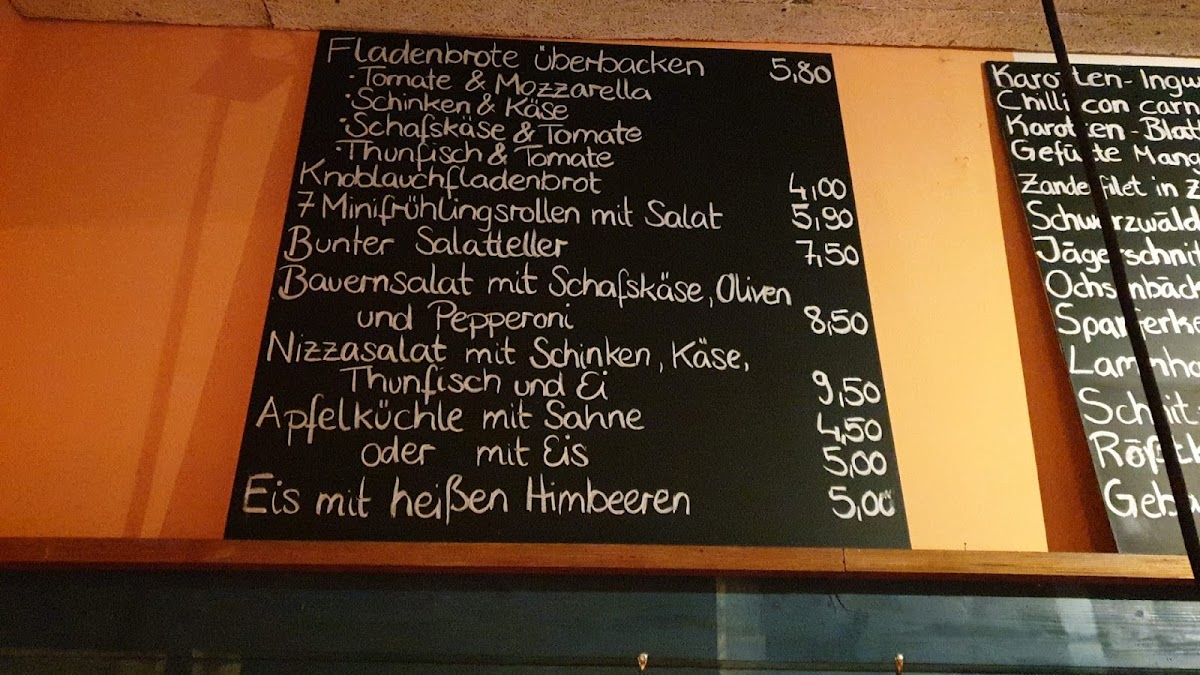 Fladenbrote überbacken 5,80
· Tomate & Mozzarella
· Schinken & Käse
· Schafskäse & Tomate
· Thunfisch & Tomate
Knoblauchfladenbrot 4,00
7 Minifrühlingsrollen mit Salat 5,90
Bunter Salatteller 7,50
Bauernsalat mit Schafskäse, Oliven
und Pepperoni 8,50
Nizzasalat mit Schinken, Käse,
Thunfisch und Ei 9,50
Apfelküchle mit Sahne 4,50
oder mit Eis 5,00
Eis mit heißen Himbeeren 5,00
Karotten-Ingw
Chilli con carn
Karotten-Blatt
Gefüllte Mang
Zanderfilet in Z
Schwarzwäld
Jägerschnit
Ochsenbäck
Spanferke
Lammha
Schnitz
Rößt
Geba